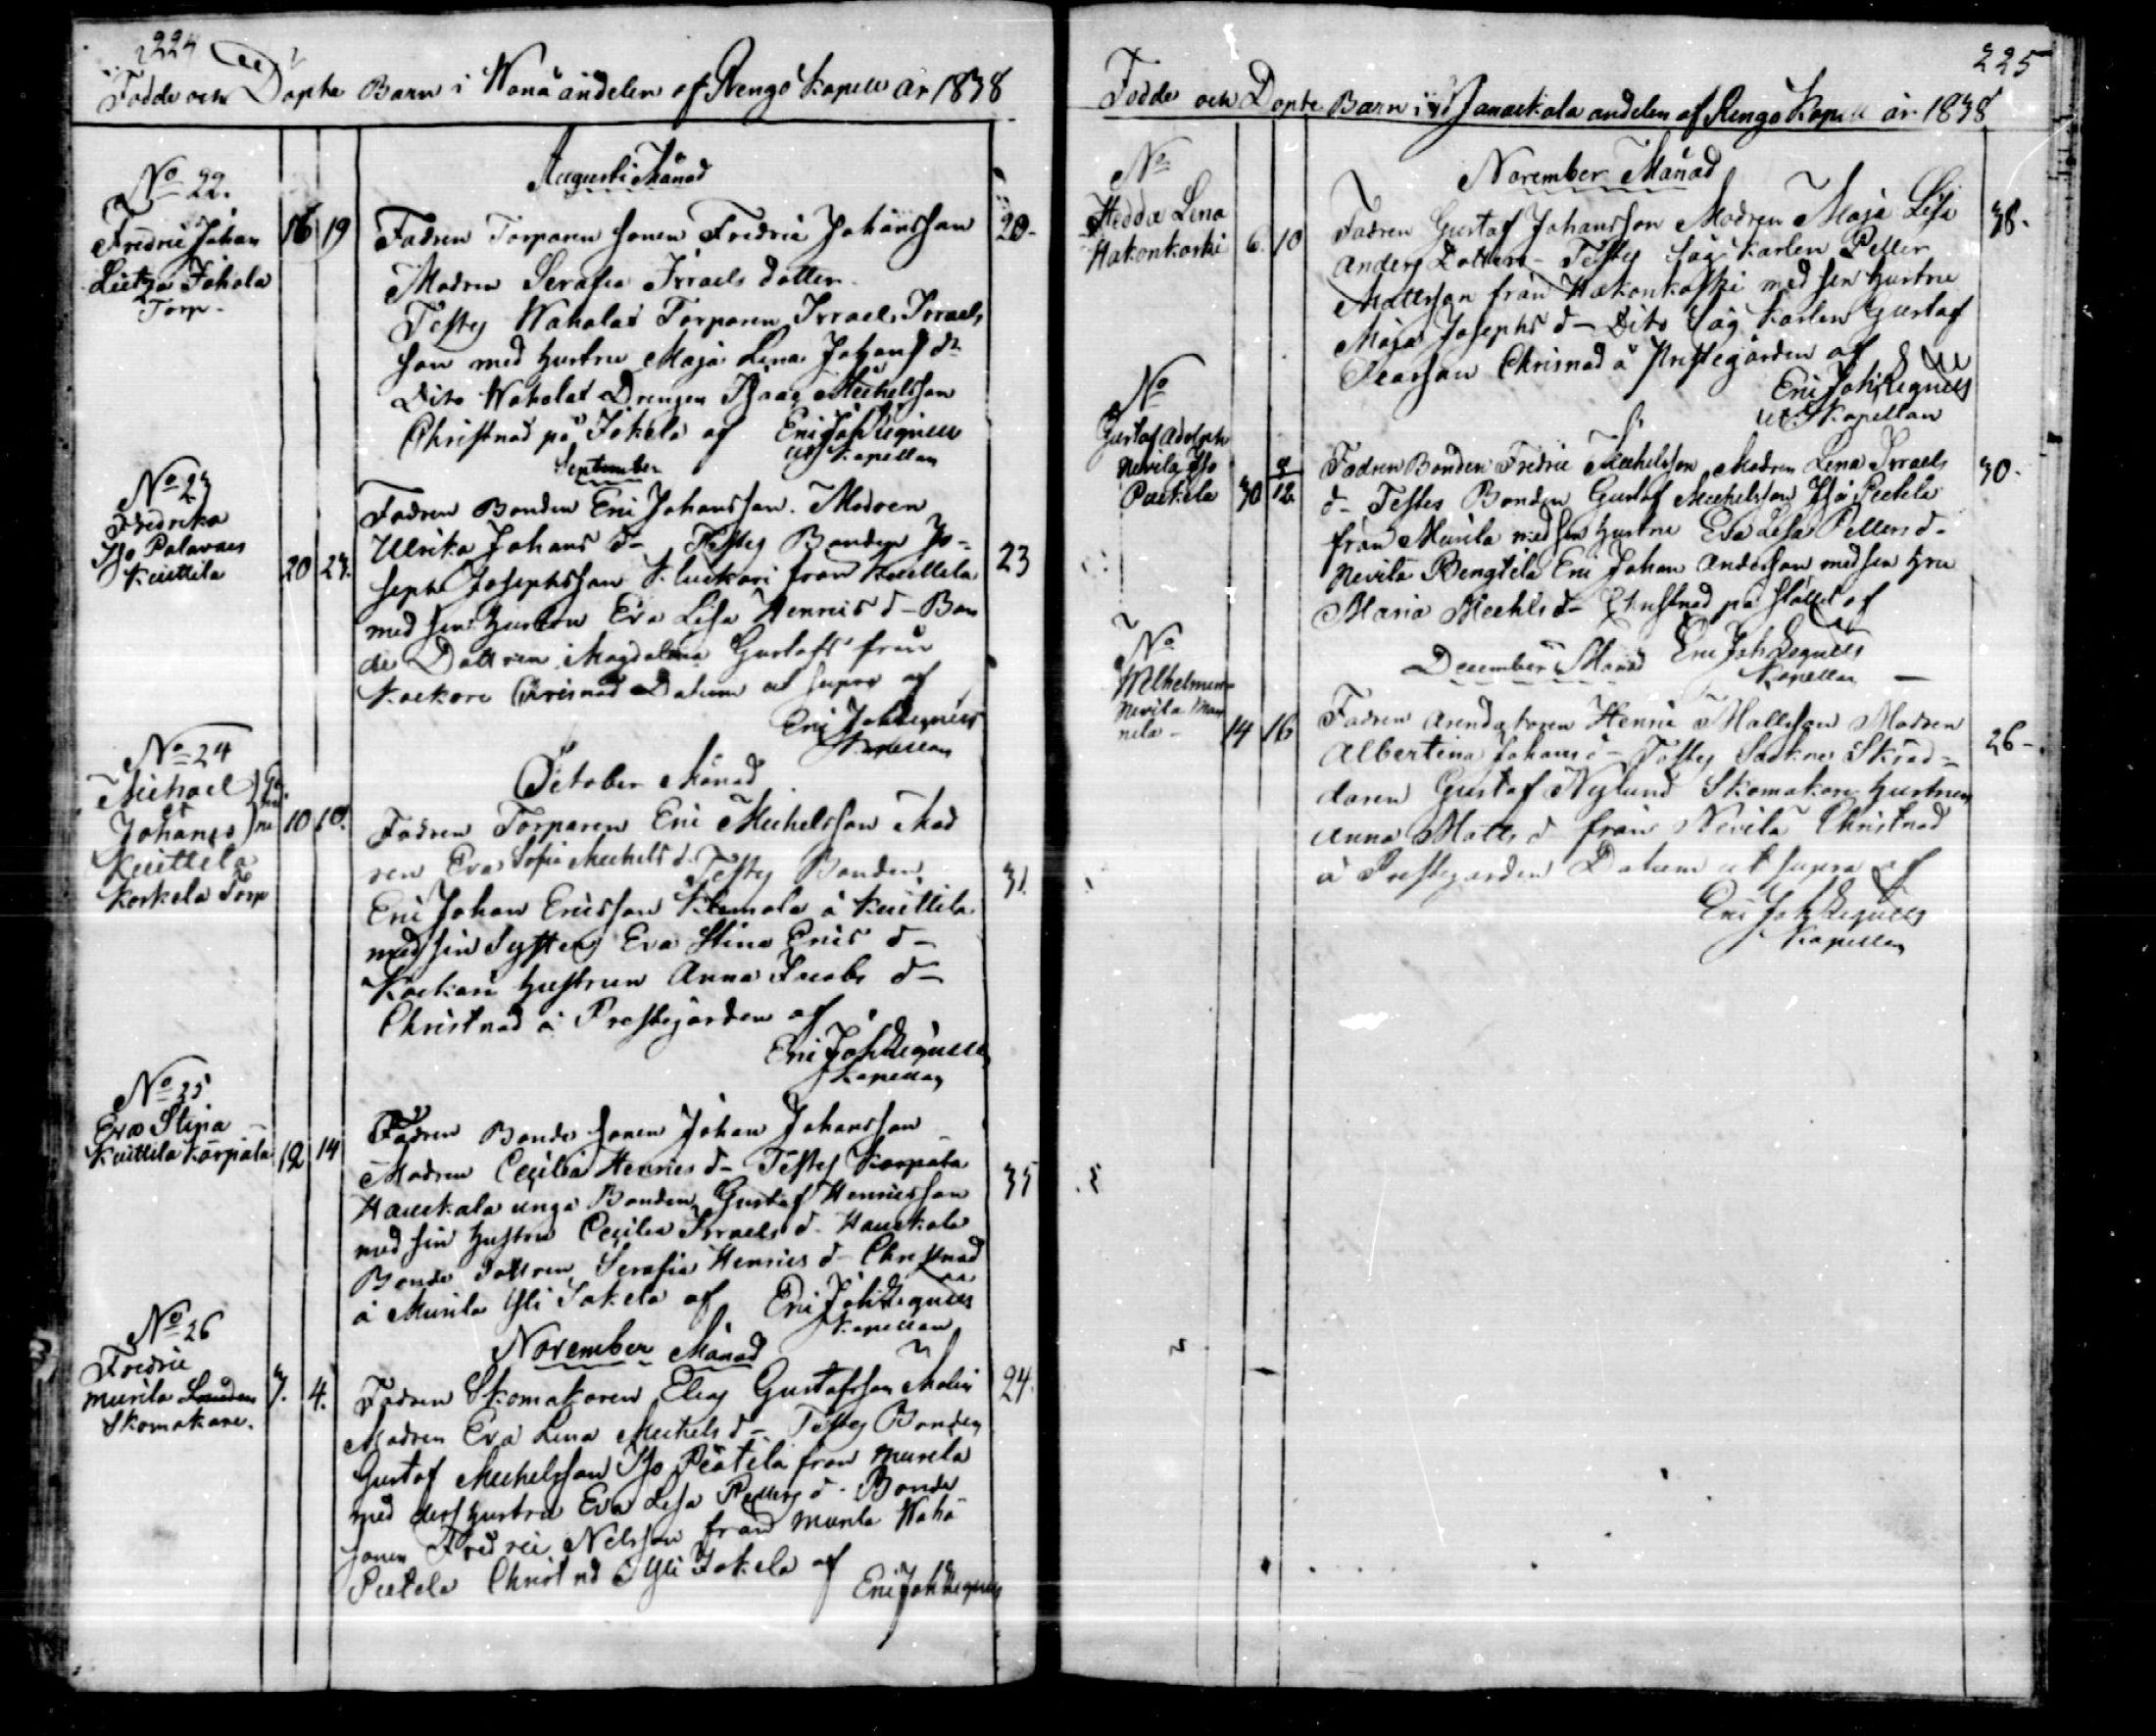 224
Födde och Döpte Barn i Wanå andelen af Rengo Kapell år 1838
Augusti Månad
No 22.
Fredric Johan
Jokela
Torp.
16 19
Fadren Torparen sonen Fredric Johansson
20.
Modren Serafia Israels dotter.
Testes Wahalas Torparen Israel Israels
son med hustru Maja Lena Johans dr
Dito Wahalas Drengen Isaac Michelsson
Christnad på Jokela af Eric Joh Regnell
Kapellan
September
No 23
Fredrika
Iso Palavaes
Kuittila
20 23.
Fadren Bonden Eric Johansson. Modren
Ulrika Johans d- Testes Bonden Jo-
seph Josephsson från Kuittila
23
med sin hustru Eva Lisa Henrics d- Bon
de Dottren Magdalena Gustafs från
Kockare Christnad Datum ut supra af
Eric Joh Regnell
Kapellan
October Månad
No 24
Michael
Johannes
Kuittila
Korkela Torp
10 10.
Fadren Torparen Eric Michelsson Mod
ren Eva Sofia Michels d. Testes Bonden
31.
Eric Johan Ericsson Klemola å Kuittila
med sin Syster Eva Stina Erics d-
hustrun Anna Jacobs d-
Christnad å Prestegården af
Eric Joh Regnell
Kapellan
No 25
Eva Stina
Kuittila Karpala
12 14
Fadren Bonde sonen Johan Johansson
Modren Cecilia Henrics d- Testes Karpala
35
Hauckala unga Bonden Gustaf Henricsson
med sin hustru Cecilia Israels d. Hauckala
Bonde Dottren Serafia Henrics d- Christnad
å Murila Yli Jokela af Eric Joh Regnell
Kapellan
November Månad
No 26
Fredric
Murila
Skomakare.
3. 4.
Fadren Skomakaren Elias Gustafsson Malin
24.
Modren Eva Lena Michels d- Testes Bonden
Gustaf Michelsson Iso Peätilä från Murila
med dess hustru Eva Lisa Petters d. Bonde
sonen Fredric Nilsson från Murila Wähä
Christnd å Yli Jokela af
Eric Joh Regnell
225
Födde och Döpte Barn i Janackala andelen af Rengo Kapell år 1838
November Månad
No
Hedda Lena
Hakonkoski
6. 10
Fadren Gustaf Johansson Modren Maja Lisa
38.
Anders Dotter- Testes Såg Karlen Petter
Mattsson från Hakonkoski med sin hustru
Maja Josephs d- Dito Såg Karlen Gustaf
Christnad å Prestegården af
Eric Joh Regnell
Kapellan
No
Gustaf Adolph
Nevilä Iso
30 2/12
Fadren Bonden Fredric Michelsson Modren Lena Israels
30.
d- Testes Bonden Gustaf Michelsson Iso
från Murila med sin hustru Eva Lisa Petters d-
Nevilä Bengtilä Eric Johan Andersson med sin hru
Maria Michels d- Christnad på stället af
Eric Joh Regnell
Kapellan
December Månad
No
Wilhelmina
Nevilä Man
nila-
14 16
Fadren Arendatoren Henric Mattsson Modren
26-
Albertina Johans d- Testes Sockne Skräd-
daren Gustaf Nylund Skomakare hustrun
Anna Matts d från Nevilä Christnad
å Prestegården Datum ut supra af
Eric Joh Regnell
Kapellan